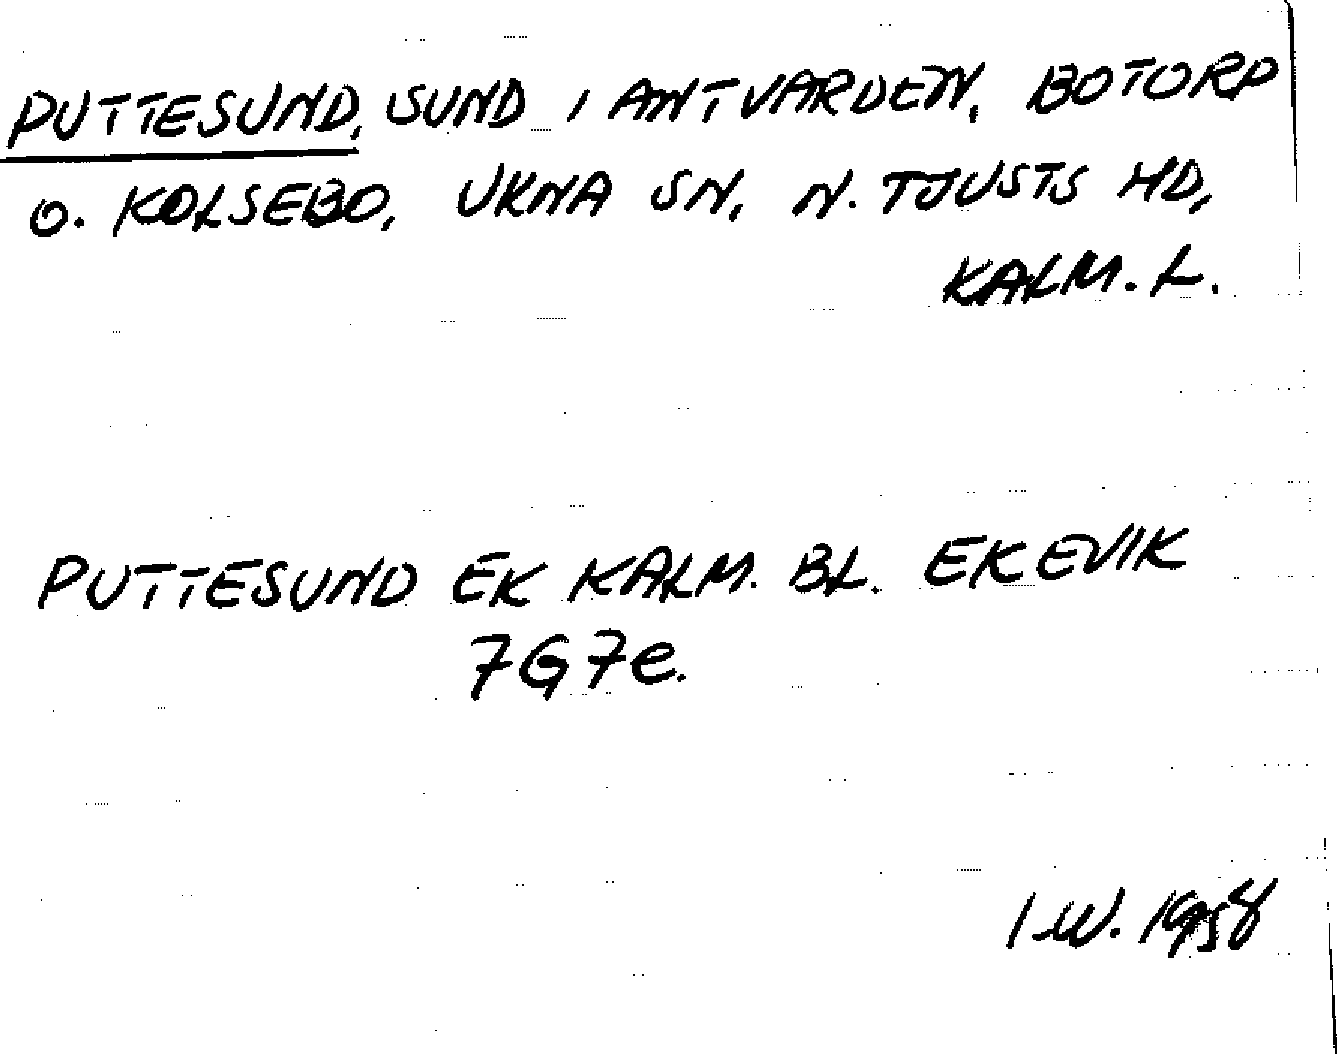 PUTTESUND, SUND I ANTVARDEN, BOTORP
O. KOLSEBO, UKNA SN, N. TJUSTS HD,
KALM. L.
PUTTESUND EK KALM. BL. EKEVIK
7G7e.
I.W. 1958